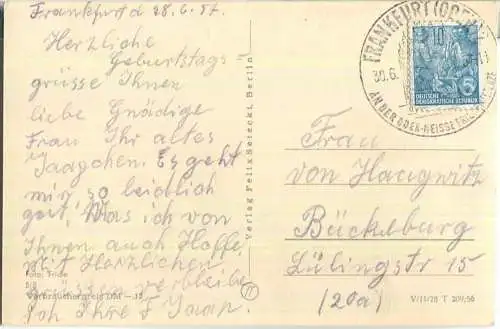 Frankfurt d 28.6.57.
Herzliche
Geburtstags-
grüsse Ihnen
liebe Gnädige
Frau Ihr altes
Jaapchen. Es geht
mir so leidlich
gut! Was ich von
Ihnen auch Hoffe.
mit Herzlichen
Grüssen verbleibe
ich Ihre F Jaap.
Foto: Thiele
Verbraucherpreis DM
Verlag Felix Setecki, Berlin
FRANKFURT (ODER)
30.6.
AN DER ODER-NEISSE-FRIEDENSGRENZE
DEUTSCHE
DEMOKRATISCHE REPUBLIK
5
Frau
von Haugwitz
Bückeburg
Lülingstr 15
(20a)
V/11/28 T 209/56